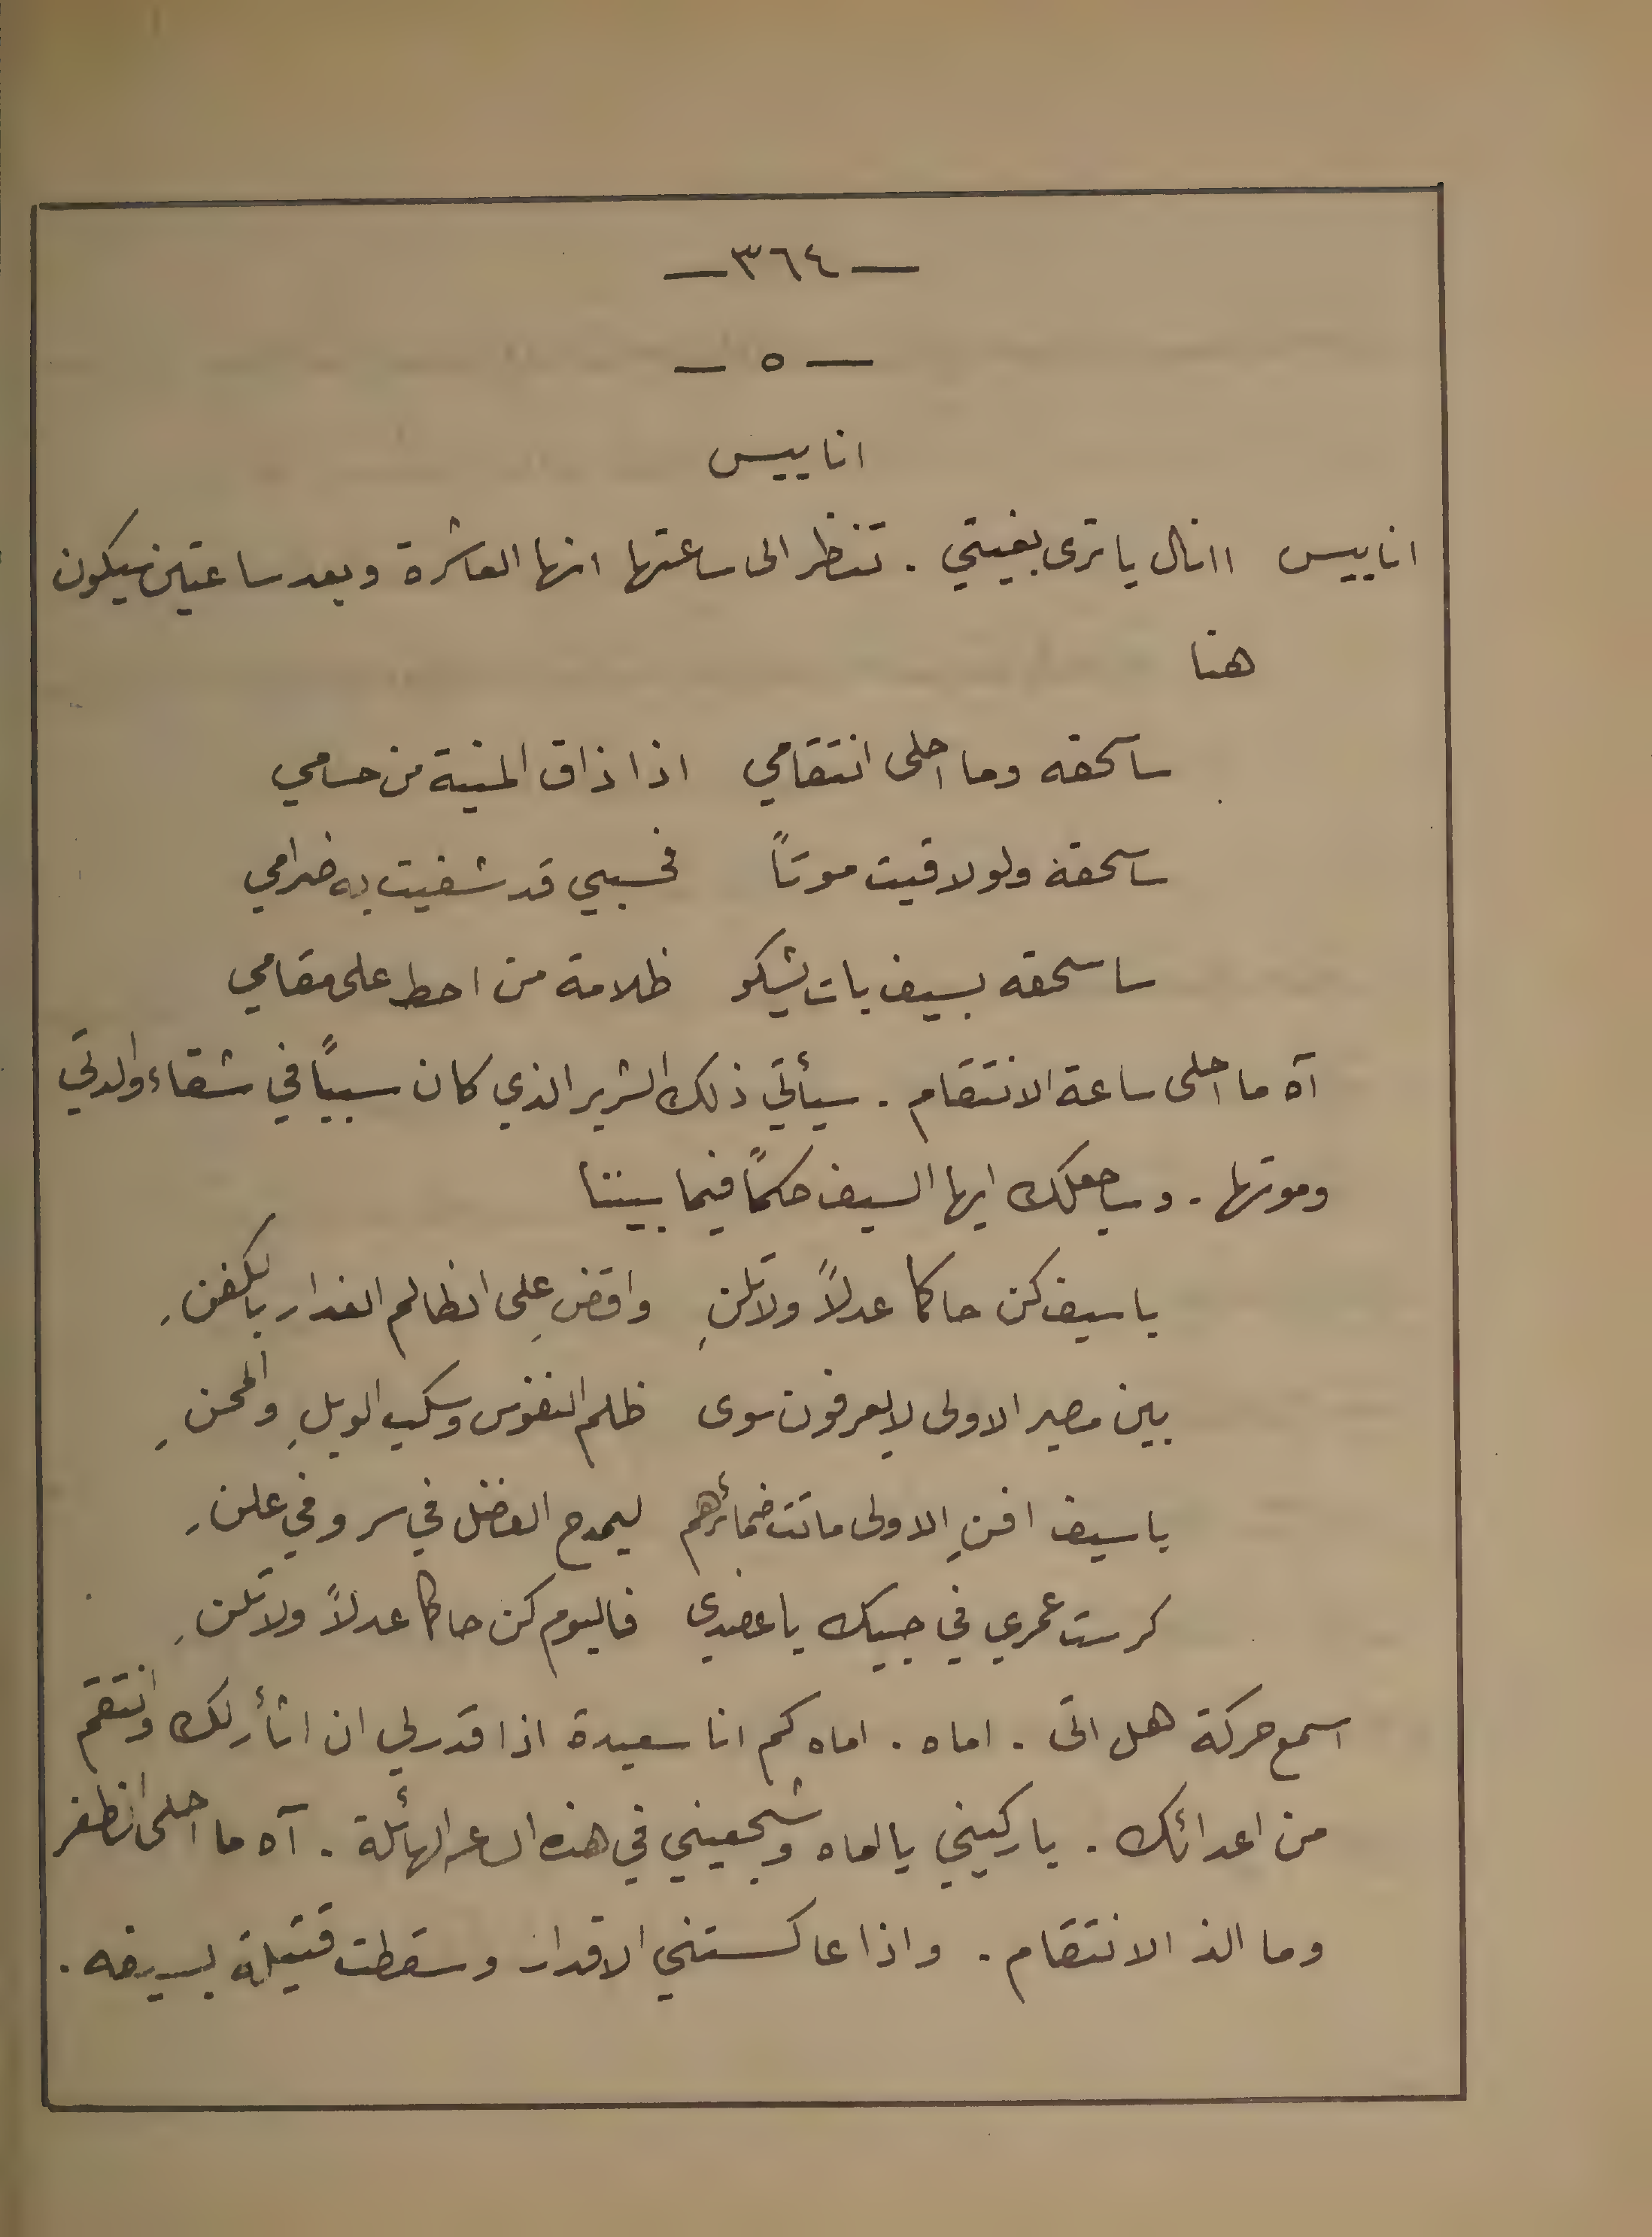 — ٣٦٤ —
— ٥ —
اناييس
اناييس اانال يا ترى بغيتي . تنظر الى ساعتها انها العاشرة وبعد ساعتين سيكون
هنا
ساسحقه وما احلى انتقامي اذا ذاق المنية من حسامي
ساسحقه ولو لاقيت موتاً فحسبي قد شفيت به ضرامي
ساسحقه بسيف بات يشكو ظلامة من احط على مقامي
آه ما احلى ساعة الانتقام . سيأتي ذلك الشرير الذي كان سبباً في شقاء والدتي
وموتها . وساجعلك ايها السيف حكماً فيما بيننا
يا سيف كن حاكما عدلاً ولا تلنِ واقضِ على الظالم الغدار بالكفنِ
بين مصير الاولى لا يعرفون سوى ظلم النفوس وسكب الويلِ والمحنِ
يا سيف افنِ الاولى ماتت ضمائرهم ليمدح الفضل في سر وفي علنِ
كرست عمري في حبيك يا عضدي فاليوم كن حاكما عدلاً ولا تلنِ
اسمع حركة هل اتى . اماه . اماه كم انا سعيدة اذا قدر لي ان اثأر لك وانتقم
من اعدائك . باركيني يا اماه وشجعيني في هذه الساعه الهائلة . آه ما احلى الظفر
وما الذ الانتقام . واذا عاكستني الاقدار وسقطت قتيلة بسيفه .